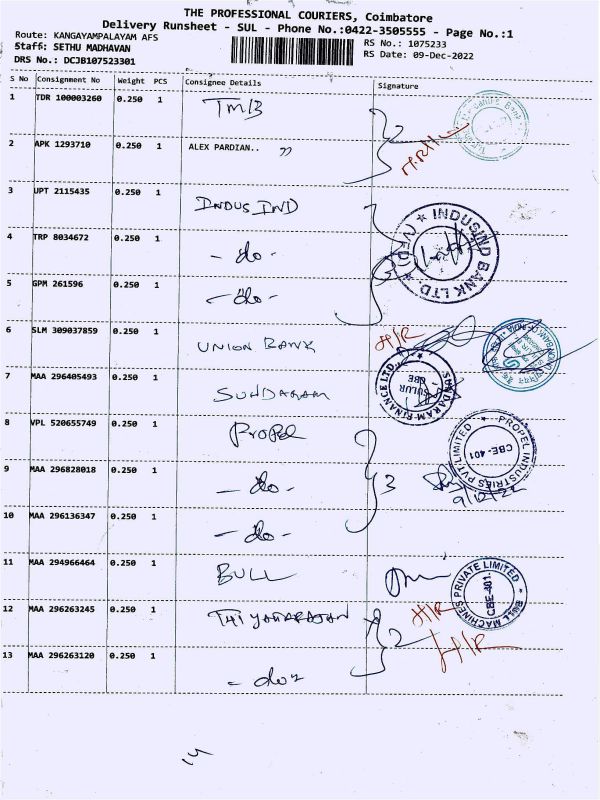 THE PROFESSIONAL COURIERS, Coimbatore
Delivery Runsheet - SUL - Phone No.:0422-3505555 - Page No.:1
Route: KANGAYAMPALAYAM AFS
Staff: SETHU MADHAVAN
DRS No.: DCJB107523301
RS No.: 1075233
RS Date: 09-Dec-2022
S No Consignment No Weight PCS Consignee Details Signature
1 TDR 100003260 0.250 1 TMB
2 APK 1293710 0.250 1 ALEX PARDIAN.. "
2
3 UPT 2115435 0.250 1 INDUS IND
4 TRP 8034672 0.250 1 - do -
5 GPM 261596 0.250 1 - do -
3
★ INDUSIND BANK LTD
6 SLM 309037859 0.250 1 UNION BANK H/R
7 MAA 296405493 0.250 1 SUNDARAM
★ SUNDARAM FINANCE LTD. SULUR CBE
8 VPL 520655749 0.250 1 PROPEL
★ PROPEL INDUSTRIES PVT. LIMITED CBE-401
9 MAA 296828018 0.250 1 - do - 3
9/12/22
10 MAA 296136347 0.250 1 - do -
11 MAA 294966464 0.250 1 BULL
★ BULL MACHINES PRIVATE LIMITED CBE-401
12 MAA 296263245 0.250 1 THIYAGARAJAN H/R
2
13 MAA 296263120 1 0.250 - do - H/R